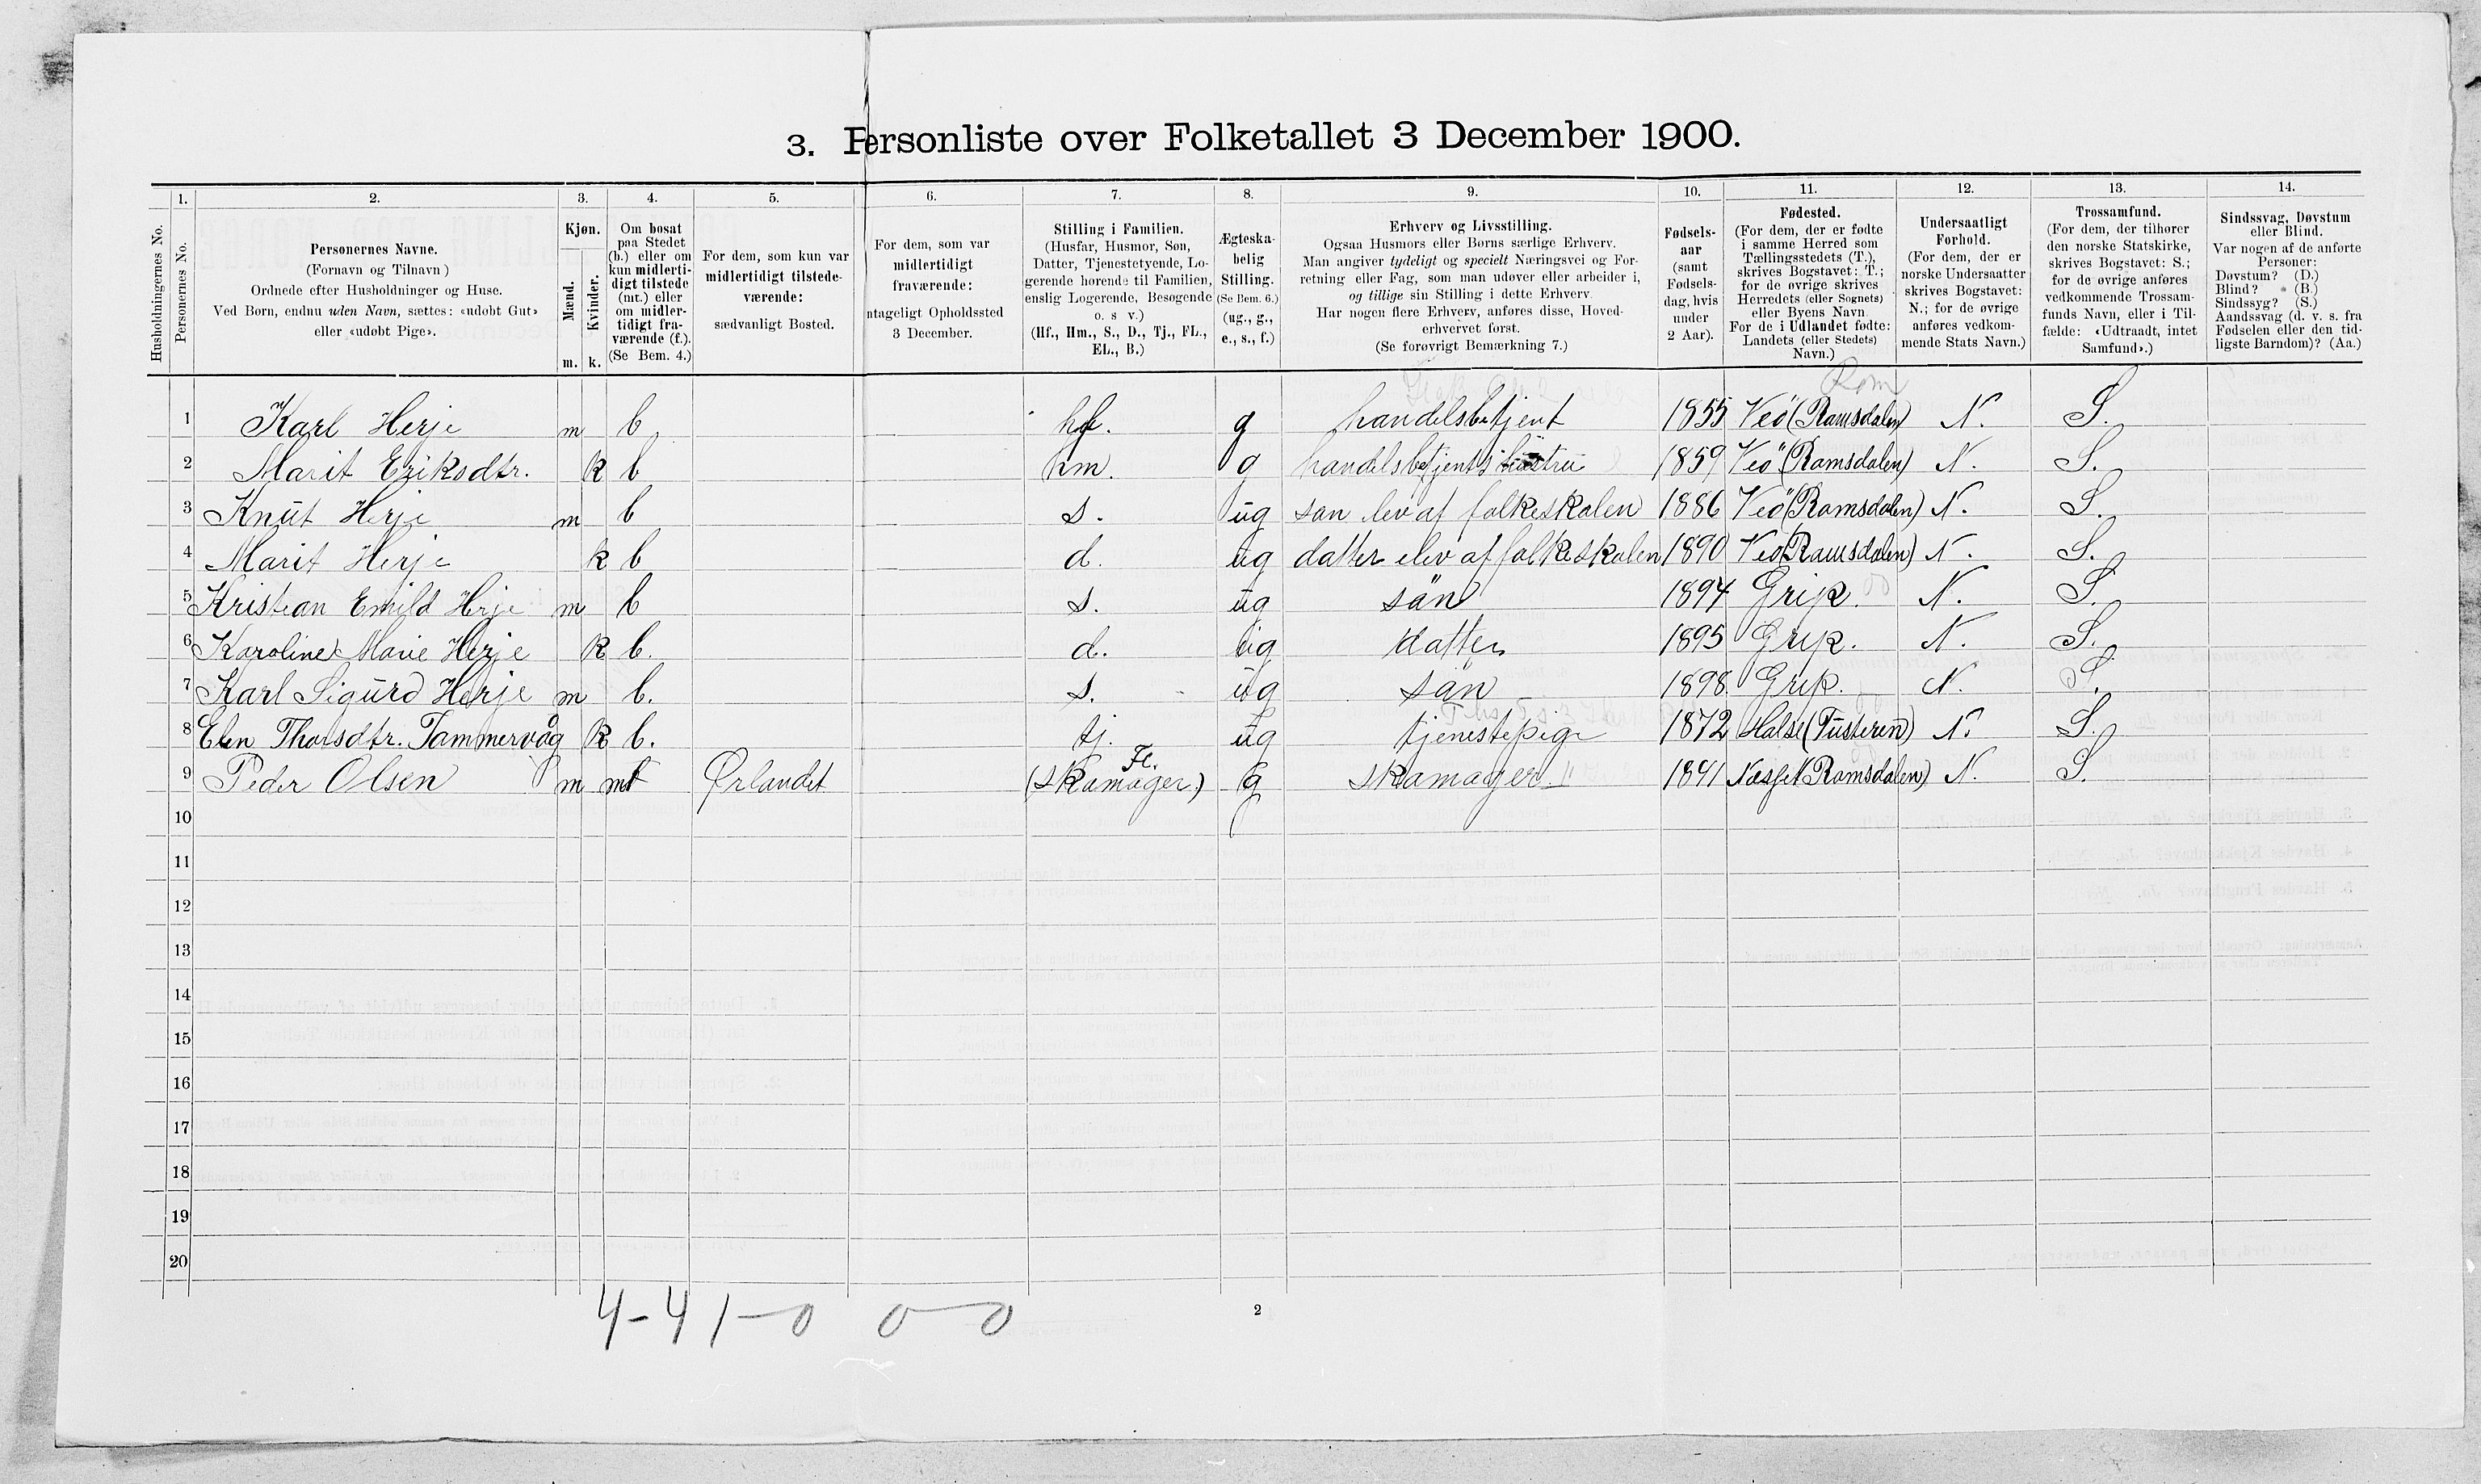 3. Personliste over Folketallet 3 December 1900.
1. 2. 3. 4. 5. 6. 7. 8. 9. 10. 11. 12. 13. 14.
Husholdningernes No.
Personernes No.
Personernes Navne.
(Fornavn og Tilnavn)
Ordnede efter Husholdninger og Huse.
Ved Børn, endnu uden Navn, sættes: «udøbt Gut»
eller «udøbt Pige».
Kjøn.
Mænd.
Kvinder.
m. k.
Om bosat
paa Stedet
(b.) eller om
kun midlerti-
digt tilstede
(mt.) eller
om midler-
tidigt fra-
værende (f.).
(Se Bem. 4.)
For dem, som kun var
midlertidigt tilstede-
værende:
sædvanligt Bosted.
For dem, som var
midlertidigt
fraværende:
ntageligt Opholdssted
3 December.
Stilling i Familien.
(Husfar, Husmor, Søn,
Datter, Tjenestetyende, Lo-
gerende hørende til Familien,
enslig Logerende, Besøgende
o. s v.)
(Hf., Hm., S., D., Tj., FL.,
EL., B.)
Ægteska-
belig
Stilling.
(Se Bem. 6.)
(ug., g.,
e., s., f.)
Erhverv og Livsstilling.
Ogsaa Husmors eller Børns særlige Erhverv.
Man angiver tydeligt og specielt Næringsvei og For-
retning eller Fag, som man udøver eller arbeider i,
og tillige sin Stilling i dette Erhverv.
Har nogen flere Erhverv, anføres disse, Hoved-
erhvervet først.
(Se forøvrigt Bemærkning 7.)
Fødsels-
aar
(samt
Fødsels-
dag, hvis
under
2 Aar).
Fødested.
(For dem, der er fødte
i samme Herred som
Tællingsstedets (T.),
skrives Bogstavet: T.;
for de øvrige skrives
Herredets (eller Sognets)
eller Byens Navn
For de i Udlandet fødte:
Landets (eller Stedets)
Navn.)
Undersaatligt
Forhold.
(For dem, der er
norske Undersaatter
skrives Bogstavet:
N.; for de øvrige
anføres vedkom-
mende Stats Navn.)
Trossamfund.
(For dem, der tilhører
den norske Statskirke,
skrives Bogstavet: S.;
for de øvrige anføres
vedkommende Trossam-
funds Navn, eller i Til-
fælde: «Udtraadt, intet
Samfund».)
Sindssvag, Døvstum
eller Blind.
Var nogen af de anførte
Personer:
Døvstum? (D.)
Blind? (B.)
Sindssyg? (S.)
Aandssvag (d. v. s. fra
Fødselen eller den tid-
ligste Barndom)? (Aa.)
Rom
1 Karl Herje m b. hf. g handelsbetjent 1855 Veö (Ramsdalen) N. S.
2 Marit Eriksdtr. k b hm. g handelsbetjents hustru 1859 Veö (Ramsdalen) N. S.
3 Knut Herje m b s. ug san lev af falkeskalen 1886 Veö (Ramsdalen) N. S.
4 Marit Herje k b d. ug datter elev af falkeskalen 1890 Veö (Ramsdalen) N. S.
5 Kristian Emild Herje m b s. ug sän 1894 Grip. N. S.
6 Karoline Marie Herje k b. d. ug datter 1895 Grip. N. S.
7 Karl Sigurd Herje m b. s. ug sän 1898 Grip. N. S.
8 Elen Tharsdtr. Tammervåg k b. tj. ug tjenestepige 1872 Halse (Tusteren) N. S.
Fl.
9 Peder Olsen m mt Ørlandet (skamager.) g skamager 1841 Næsset (Ramsdalen) N. S.
10
11
12
13
14
15
16
17
18
19
20
4-4 1-0 0-0
2